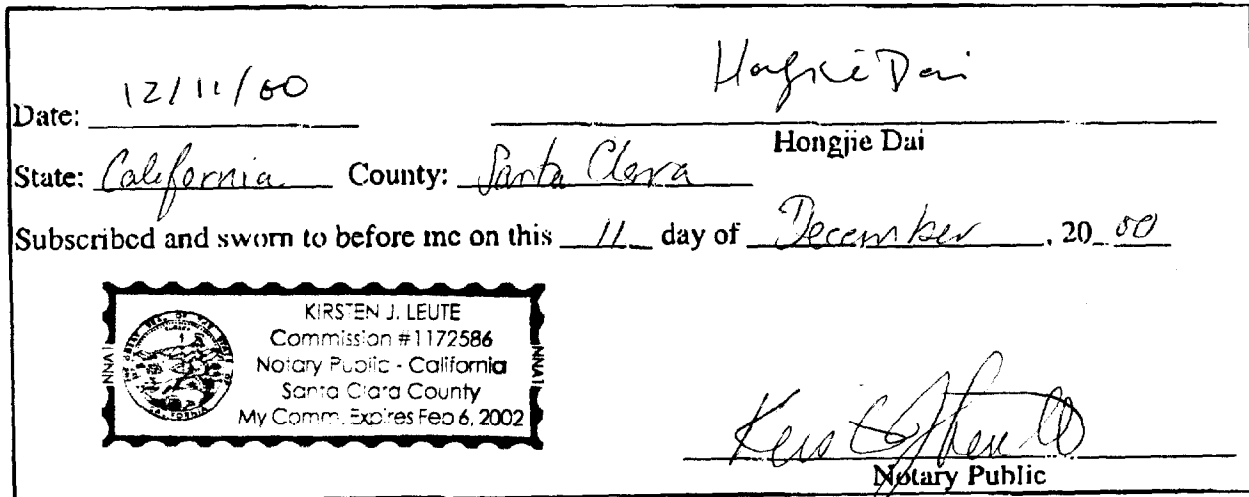 Date: 12/11/00 Hongjie Dai
Hongjie Dai
State: California County: Santa Clara
Subscribed and sworn to before me on this 11 day of December, 20 00
KIRSTEN J. LEUTE
Commission #1172586
Notary Public - California
Santa Clara County
My Comm. Expires Feb 6, 2002
Notary Public